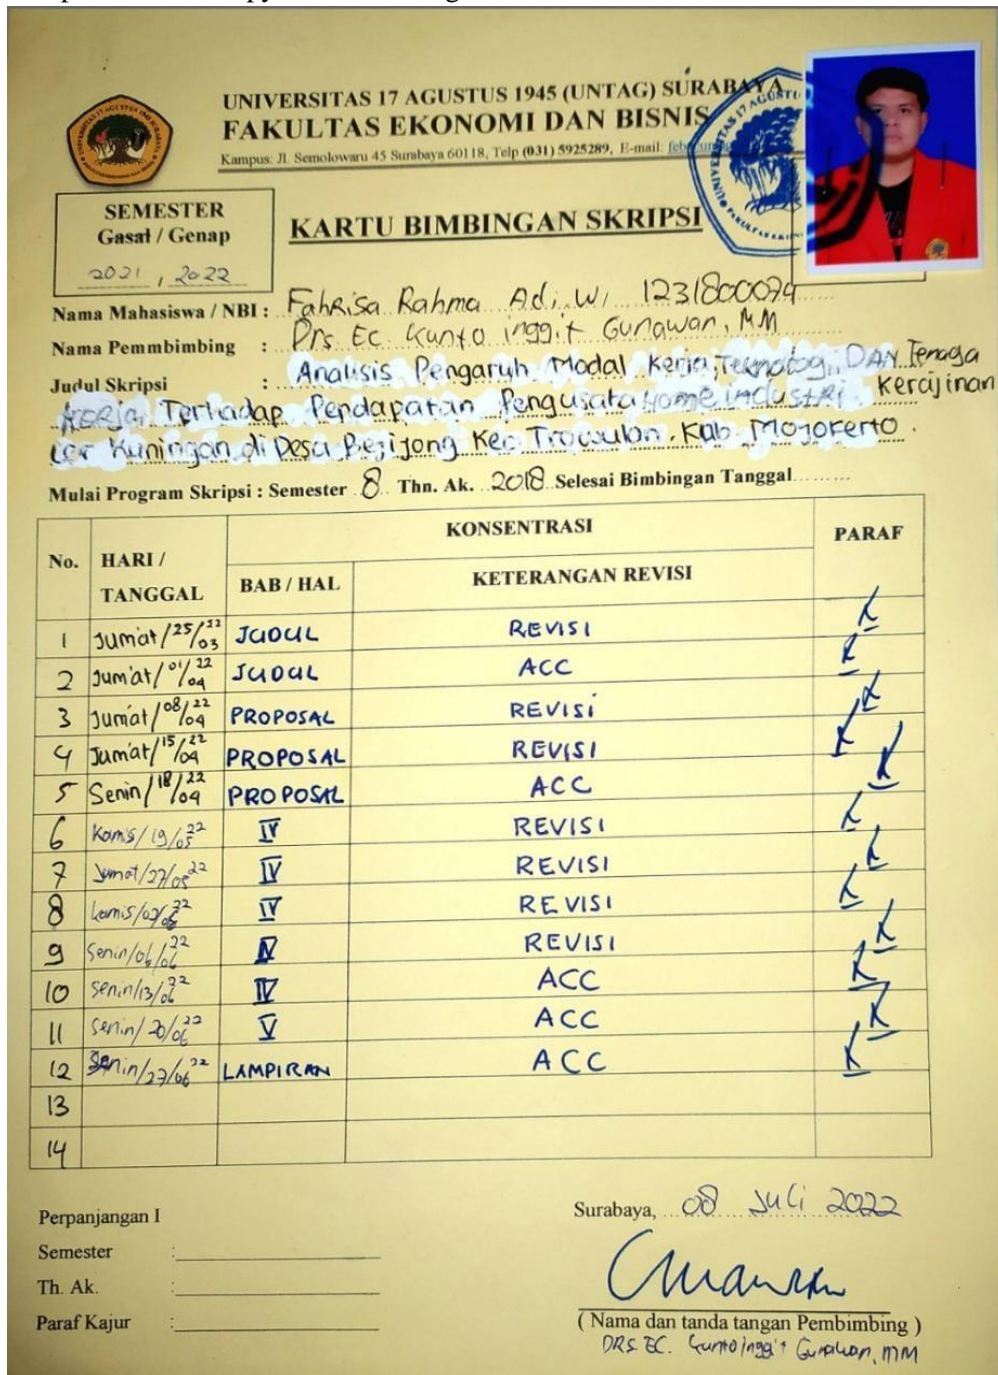 UNIVERSITAS 17 AGUSTUS 1945 (UNTAG) SURABAYA
FAKULTAS EKONOMI DAN BISNIS
Kampus: Jl. Semolowaru 45 Surabaya 60118, Telp (031) 5925289, E-mail:
SEMESTER
Gasal / Genap
2021 , 2022
KARTU BIMBINGAN SKRIPSI
Nama Mahasiswa / NBI : Fahrisa Rahma Adi. W / 1231800074
Nama Pemmbimbing : Drs Ec Kunto inggit Gunawan, MM
Judul Skripsi : Analisis Pengaruh Modal Kerja, Teknologi, DAN Tenaga
Kerja Terhadap Pendapatan Pengusaha Home industri Kerajinan
Cor Kuningan di Desa Bejijong Kec Trowulan. Kab Mojokerto.
Mulai Program Skripsi : Semester 8 Thn. Ak. 2018 Selesai Bimbingan Tanggal.........
No. HARI / TANGGAL KONSENTRASI PARAF
BAB / HAL KETERANGAN REVISI
1 Jum'at/25/03 22 JUDUL REVISI
2 Jum'at/01/04 22 JUDUL ACC
3 Jum'at/08/04 22 PROPOSAL REVISI
4 Jum'at/15/04 22 PROPOSAL REVISI
5 Senin/18/04 22 PROPOSAL ACC
6 Kamis/19/05 22 IV REVISI
7 Jumat/27/05 22 IV REVISI
8 Kamis/02/06 22 IV REVISI
9 Senin/06/06 22 IV REVISI
10 Senin/13/06 22 IV ACC
11 Senin/20/06 22 V ACC
12 Senin/27/06 22 LAMPIRAN ACC
13
14
Perpanjangan I
Semester :
Th. Ak. :
Paraf Kajur :
Surabaya, 08 Juli 2022
( Nama dan tanda tangan Pembimbing )
DRS. EC. Kunto Inggit Gunawan, MM